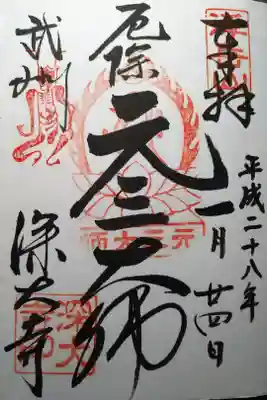 奉拝
平成二十八年
一月廿四日
厄除
元三大師
元三大師
武州
深大寺